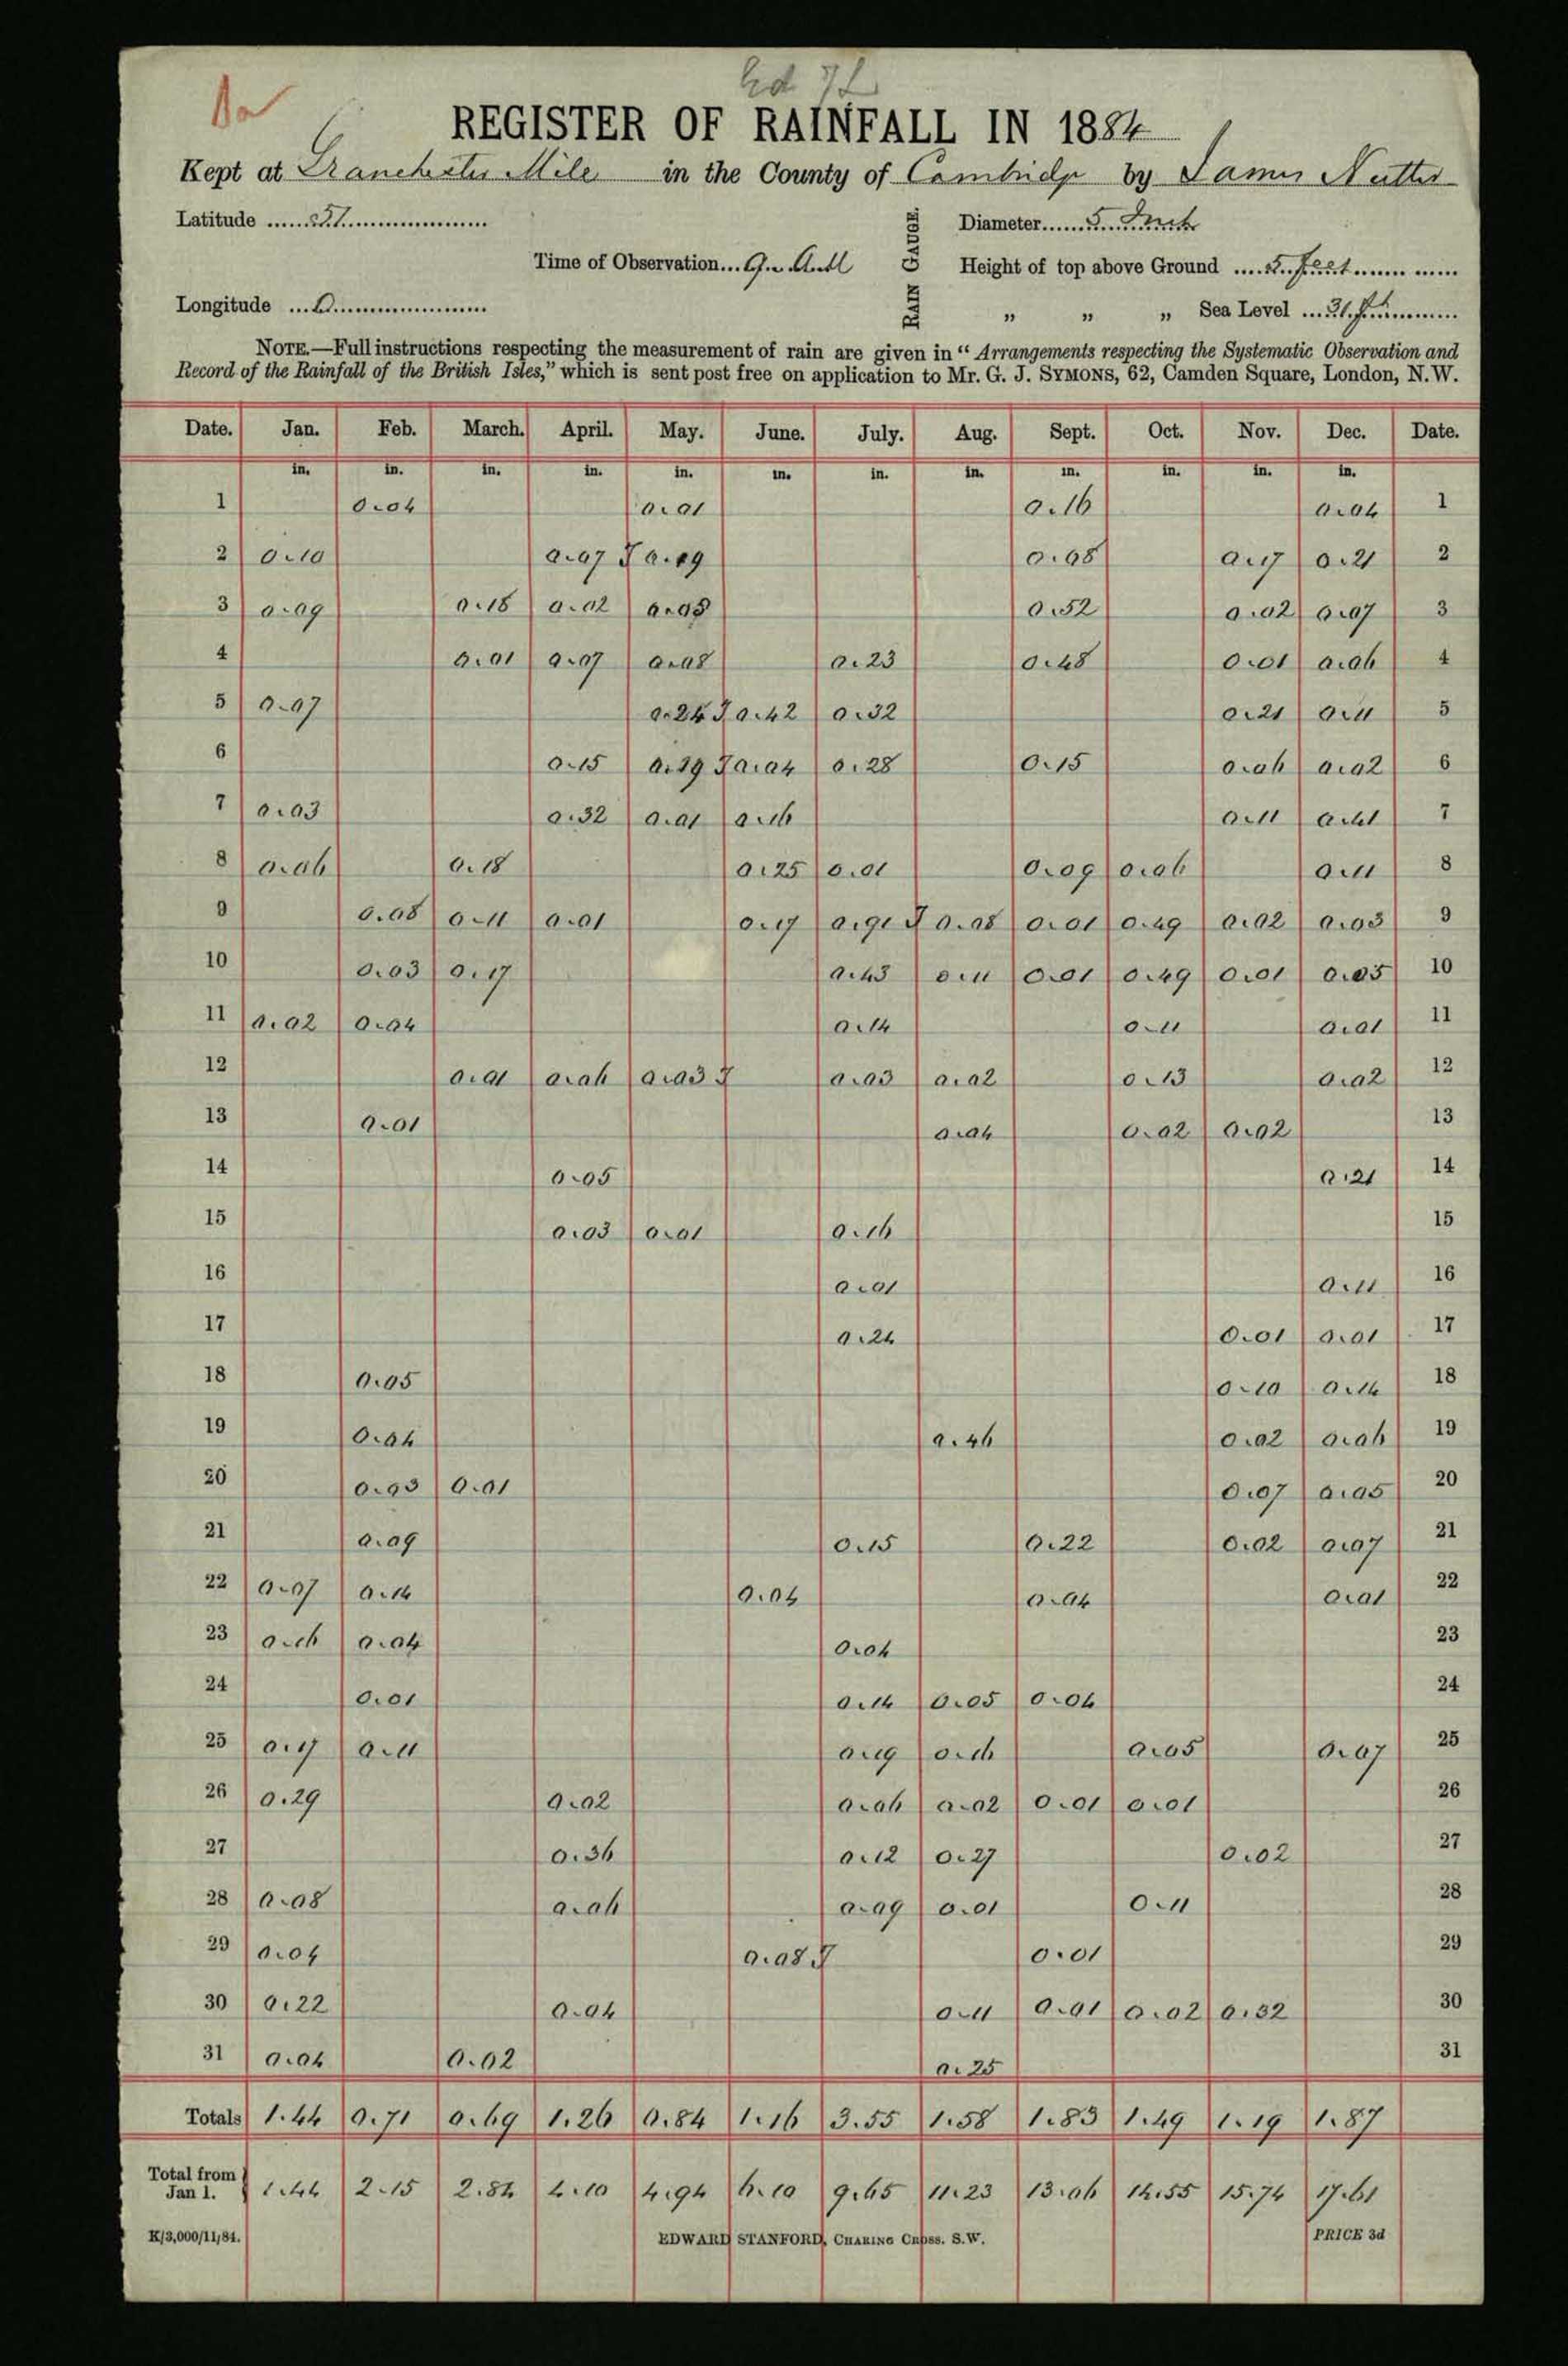 REGISTER OF RAINFALL IN 1884
Kept at Granchester Mile in the County of Cambridge by James Nutter
Latitude 51
Diameter 5 Inch
Time of Observation 9. A.M
RAIN GAUGE.
Height of top above Ground 5 feet
Longitude 0
„ „ „ Sea Level 31 ft
NOTE.—Full instructions respecting the measurement of rain are given in “Arrangements respecting the Systematic Observation and
Record of the Rainfall of the British Isles,” which is sent post free on application to Mr. G. J. SYMONS, 62, Camden Square, London, N.W.
Date. Jan. Feb. March. April. May. June. July. Aug. Sept. Oct. Nov. Dec. Date.
in. in. in. in. in. in. in. in. in. in. in. in.
1 0.04 0.01 0.16 0.04 1
2 0.10 0.07 T 0.19 0.08 0.17 0.21 2
3 0.09 0.18 0.02 0.08 0.52 0.02 0.07 3
4 0.01 0.07 0.08 0.23 0.48 0.01 0.06 4
5 0.07 0.24 T 0.42 0.32 0.21 0.11 5
6 0.15 0.19 T 0.04 0.28 0.15 0.06 0.02 6
7 0.03 0.32 0.01 0.16 0.11 0.41 7
8 0.06 0.18 0.25 0.01 0.09 0.06 0.11 8
9 0.08 0.11 0.01 0.17 0.91 T 0.08 0.01 0.49 0.02 0.03 9
10 0.03 0.17 0.43 0.11 0.01 0.49 0.01 0.05 10
11 0.02 0.04 0.14 0.11 0.01 11
12 0.01 0.06 0.03 T 0.03 0.02 0.13 0.02 12
13 0.01 0.04 0.02 0.02 13
14 0.05 0.21 14
15 0.03 0.01 0.16 15
16 0.01 0.11 16
17 0.24 0.01 0.01 17
18 0.05 0.10 0.14 18
19 0.04 0.46 0.02 0.06 19
20 0.03 0.01 0.07 0.05 20
21 0.09 0.15 0.22 0.02 0.07 21
22 0.07 0.14 0.04 0.04 0.01 22
23 0.16 0.04 0.04 23
24 0.01 0.14 0.05 0.04 24
25 0.17 0.11 0.19 0.16 0.05 0.07 25
26 0.29 0.02 0.06 0.02 0.01 0.01 26
27 0.36 0.12 0.27 0.02 27
28 0.08 0.06 0.09 0.01 0.11 28
29 0.04 0.08 T 0.01 29
30 0.22 0.04 0.11 0.01 0.02 0.32 30
31 0.04 0.02 0.25 31
Totals 1.44 0.71 0.69 1.26 0.84 1.16 3.55 1.58 1.83 1.49 1.19 1.87
Total from Jan 1. 1.44 2.15 2.84 4.10 4.94 6.10 9.65 11.23 13.06 14.55 15.74 17.61
K/3,000/11/84. EDWARD STANFORD, CHARING CROSS. S.W. PRICE 3d